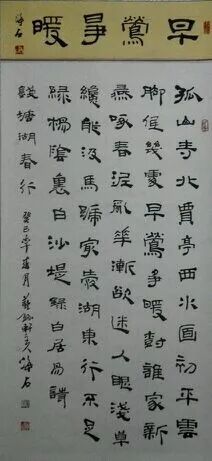 早鶯爭暖
海石
孤山寺北賈亭西水面初平雲
脚低幾處早鶯爭暖樹誰家新
燕啄春泥亂華漸欲迷人眼淺草
纔能沒馬蹄冣愛湖東行不足
綠楊陰裏白沙堤錄白居易詩
錢塘湖春行 癸巳年 月 軒主人海石